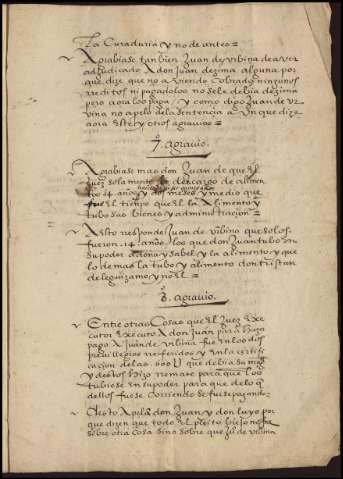 La Curaduria y no de antes=
Agrabiase tanbien Juan de vrbina de aver
adjudicado A don Juan dezima alguna por
que dize que no a viendo cobrado ningunos
rreditos ni pagadolos no se le debia dezima
pero aora los paga, y como digo Juan de vr
vina no apelo de la sentencia Aunque dize
aora este y otros agravios=
7. agravio.
Agrabiase mas don Juan de que el
Juez solamente le descargo de alimen
tos 14 años y meses y medio que
fue el tiempo que el la Alimento y
tubo sus bienes y administracion=
A esto responde Juan de vrbina que solos
fueron .14. años los que don Juan tubo en
su poder a doña ysabel y la alimento y que
lo demas la tubo y alimento don tristan
de leguizamo y no el=
8. agravio.
Entre otras Cosas que el Juez exe
cutor executo A don Juan para hazer
pago A Juan de vrbina fue en los dos
previllegios rreferidos y en la certifi
cacion de las .600 U que debia su magd
y destos hizo remate para que los
tubiese en su poder para que de lo q
dellos fuese Corriendo se fuese pagando=
A esto Apela don Juan y don luys por
que dizen que todo el pleito biejo no fue
sobre otra cosa sino sobre que Ju de vrbina